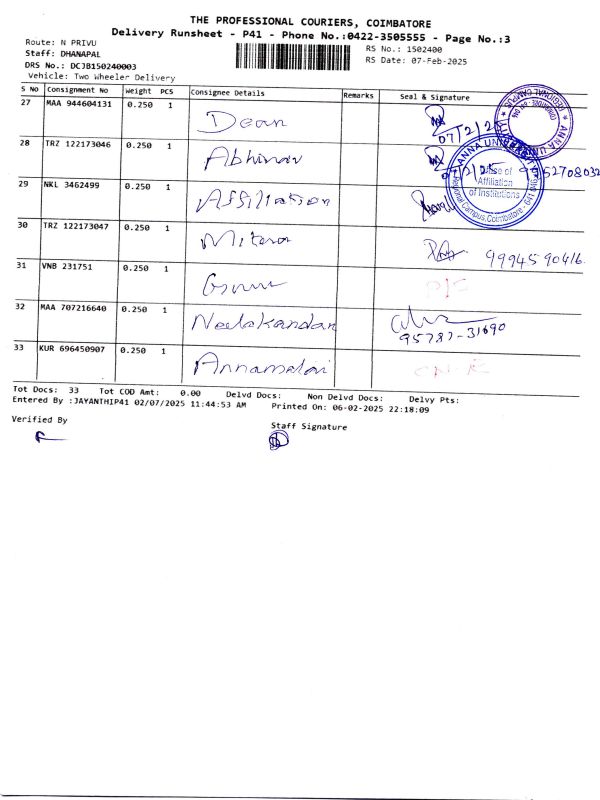 THE PROFESSIONAL COURIERS, COIMBATORE
Delivery Runsheet - P41 - Phone No.:0422-3505555 - Page No.:3
Route: N PRIVU
RS No.: 1502400
Staff: DHANAPAL
RS Date: 07-Feb-2025
DRS No.: DCJB150240003
Vehicle: Two Wheeler Delivery
S NO Consignment No Weight PCS Consignee Details Remarks Seal & Signature
27 MAA 944604131 0.250 1 Dean 07/2/25
28 TRZ 122173046 0.250 1 Abhinav
29 NKL 3462499 0.250 1 Affiliation
30 TRZ 122173047 0.250 1 9994590416
31 VNB 231751 0.250 1
32 MAA 707216640 0.250 1 Neelakandan 95787-31690
33 KUR 696450907 0.250 1 Annamalai
ANNA UNIVERSITY
Office of
Affiliation
of Institutions
Regional Campus, Coimbatore - 641 046
Tot Docs: 33 Tot COD Amt: 0.00 Delvd Docs: Non Delvd Docs: Delvy Pts:
Entered By :JAYANTHIP41 02/07/2025 11:44:53 AM Printed On: 06-02-2025 22:18:09
Verified By
Staff Signature